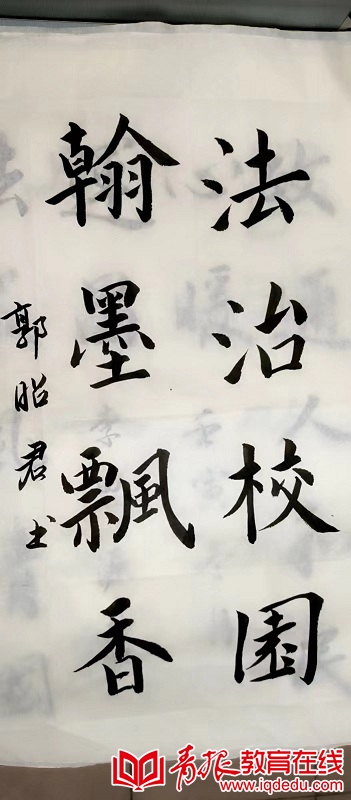 法治校園
翰墨飄香
郭昭君书
青报教育在线
www.iqdedu.com